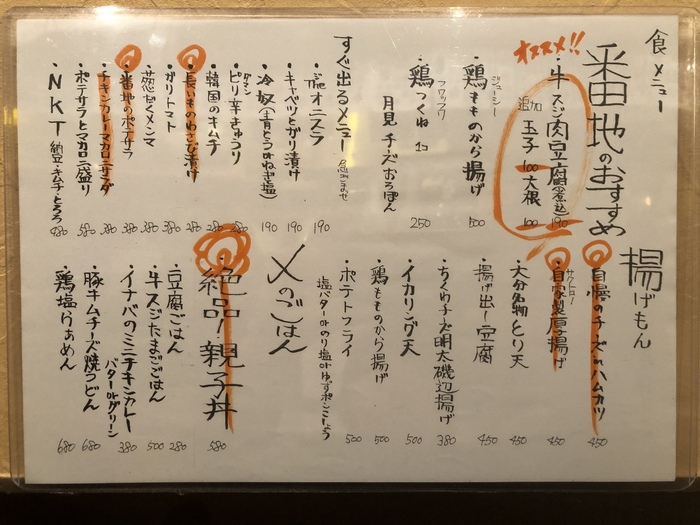 食メニュー
番地のおすすめ
オススメ!!
・牛スジ肉豆腐(煮込)190
追加
玉子 100
大根 100
ジューシー
・鶏もものから揚げ 500
フワッフワ
・鶏つくね 1コ 250
月見 チーズ おろぽん
すぐ出るメニュー
・オニスラ 190
・キャベツとガリ漬け 190
・冷奴(青とうorねぎ塩) 190
・ピリ辛きゅうり 280
・韓国のキムチ 280
・長いものわさび漬け 280
・ガリトマト 380
・葱だくメンマ 380
・番地のポテサラ 380
・チキンカレーマカロニサラダ 380
・ポテサラとマカロニ盛り 580
・NKT 納豆・キムチ・とろろ 480
揚げもん
・自慢のチーズinハムカツ 450
サクトロ〜
・自家製厚揚げ 450
・大分名物とり天 450
・揚げ出し豆腐 450
・ちくわチーズ明太磯辺揚げ 380
・イカリング天 500
・鶏もものから揚げ 500
・ポテトフライ 500
塩バターorのり塩orゆずポンこしょう
〆のごはん
・絶品!親子丼 580
・豆腐ごはん 280
・牛スジたまごごはん 500
・イナバのミニチキンカレー 380
バターorグリーン
・豚キムチーズ焼うどん 680
・鶏塩らぁめん 680